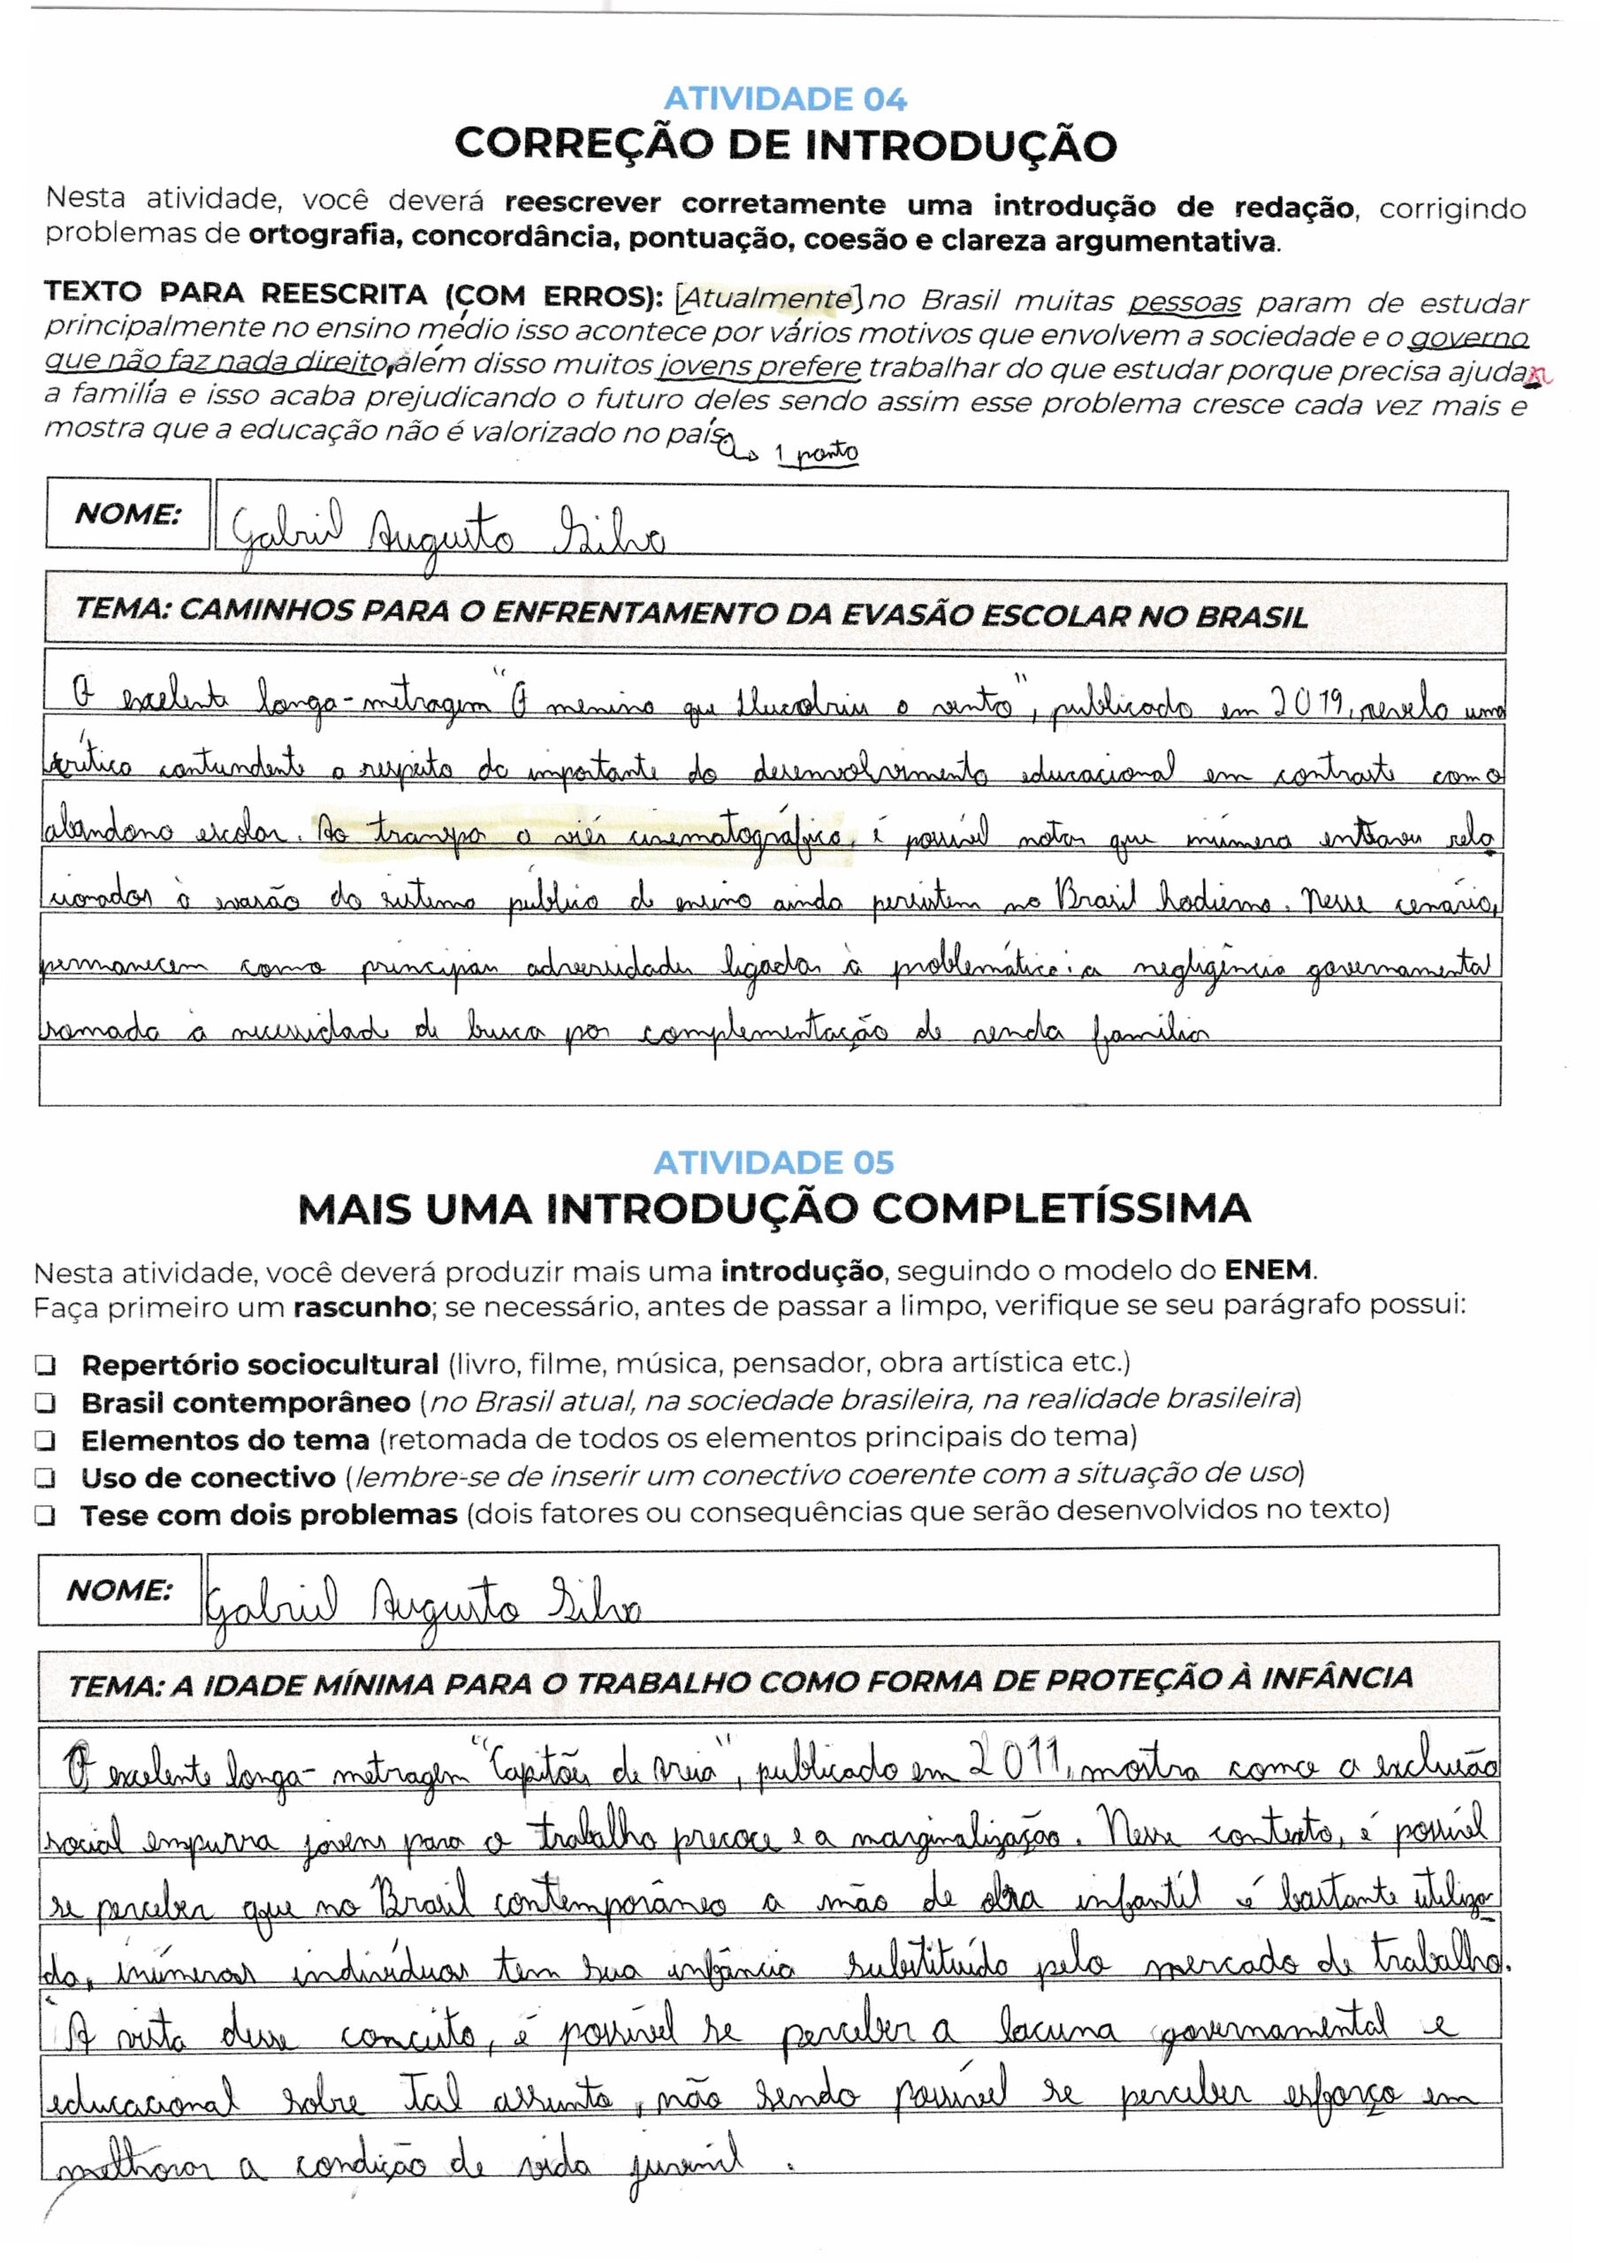 ATIVIDADE 04
CORREÇÃO DE INTRODUÇÃO
Nesta atividade, você deverá reescrever corretamente uma introdução de redação, corrigindo
problemas de ortografia, concordância, pontuação, coesão e clareza argumentativa.
TEXTO PARA REESCRITA (COM ERROS): [Atualmente] no Brasil muitas pessoas param de estudar
principalmente no ensino médio isso acontece por vários motivos que envolvem a sociedade e o governo
que não faz nada direito, além disso muitos jovens prefere trabalhar do que estudar porque precisa ajudar
a família e isso acaba prejudicando o futuro deles sendo assim esse problema cresce cada vez mais e
mostra que a educação não é valorizado no país.
1 ponto
NOME: Gabriel Augusto Silva
TEMA: CAMINHOS PARA O ENFRENTAMENTO DA EVASÃO ESCOLAR NO BRASIL
O excelente longa-metragem "O menino que descobriu o vento", publicado em 2019, revela uma
crítica contundente a respeito da importante do desenvolvimento educacional em contraste com o
abandono escolar. Ao transpor o viés cinematográfico, é possível notar que inúmeros entraves rela
cionados à evasão do sistema público de ensino ainda persistem no Brasil hodierno. Nesse cenário,
permanecem como principais adversidades ligadas à problemática: a negligência governamental
somada a necessidade de busca por complementação de renda familiar
ATIVIDADE 05
MAIS UMA INTRODUÇÃO COMPLETÍSSIMA
Nesta atividade, você deverá produzir mais uma introdução, seguindo o modelo do ENEM.
Faça primeiro um rascunho; se necessário, antes de passar a limpo, verifique se seu parágrafo possui:
❑ Repertório sociocultural (livro, filme, música, pensador, obra artística etc.)
❑ Brasil contemporâneo (no Brasil atual, na sociedade brasileira, na realidade brasileira)
❑ Elementos do tema (retomada de todos os elementos principais do tema)
❑ Uso de conectivo (lembre-se de inserir um conectivo coerente com a situação de uso)
❑ Tese com dois problemas (dois fatores ou consequências que serão desenvolvidos no texto)
NOME: Gabriel Augusto Silva
TEMA: A IDADE MÍNIMA PARA O TRABALHO COMO FORMA DE PROTEÇÃO À INFÂNCIA
O excelente longa-metragem "Capitães de Areia", publicado em 2011, mostra como a exclusão
social empurra jovens para o trabalho precoce e a marginalização. Nesse contexto, é possível
se perceber que no Brasil contemporâneo a mão de obra infantil é bastante utiliza-
da, inúmeros indivíduos tem sua infância substituída pelo mercado de trabalho.
À vista desse conceito, é possível se perceber a lacuna governamental e
educacional sobre tal assunto, não sendo possível se perceber esforço em
melhorar a condição de vida juvenil.